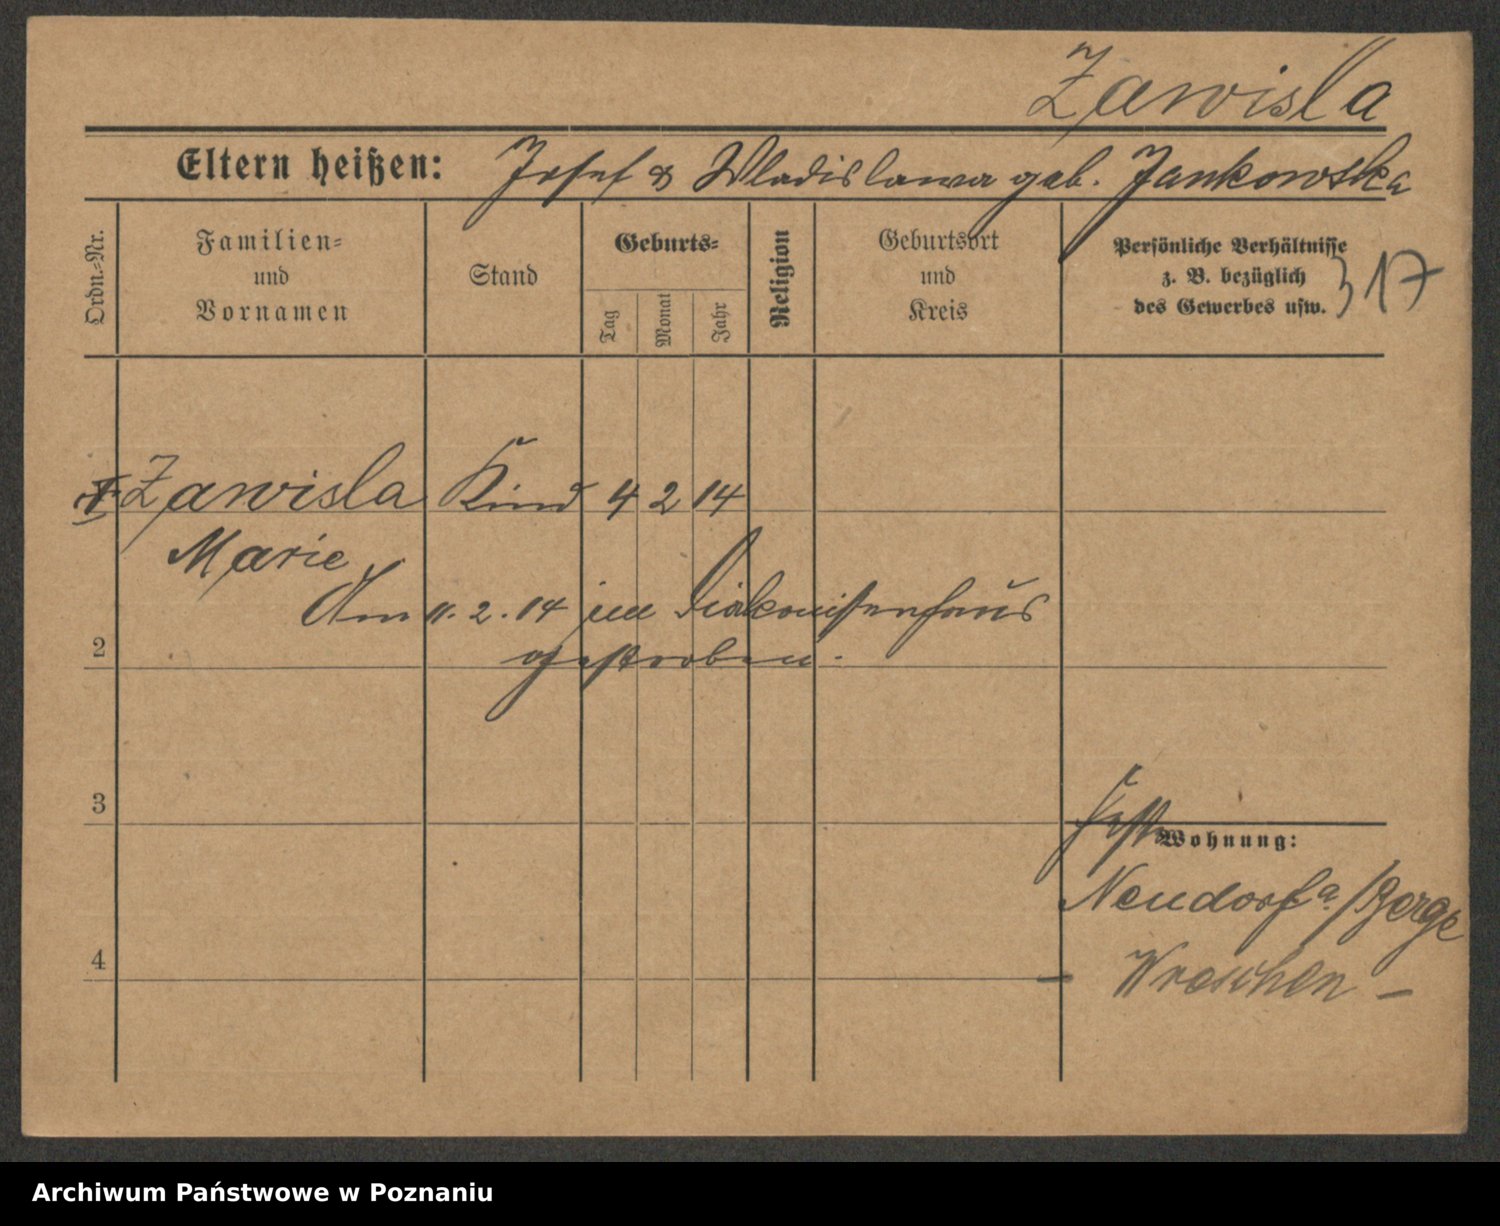 Zawisla
Eltern heißen: Josef & Wladislawa geb. Jankowska
Ordn.-Nr.
Familien-
und
Vornamen
Stand
Geburts-
Tag
Monat
Jahr
Religion
Geburtsort
und
Kreis
Persönliche Verhältnisse
z. B. bezüglich
des Gewerbes usw.
317
Zawisla Kind 4 2 14
Marie
Am 11. 2. 14 im Diakonissenhaus
2
gestorben.
3
Wohnung:
Neudorf a/Berge
4
Wreschen –
Archiwum Państwowe w Poznaniu